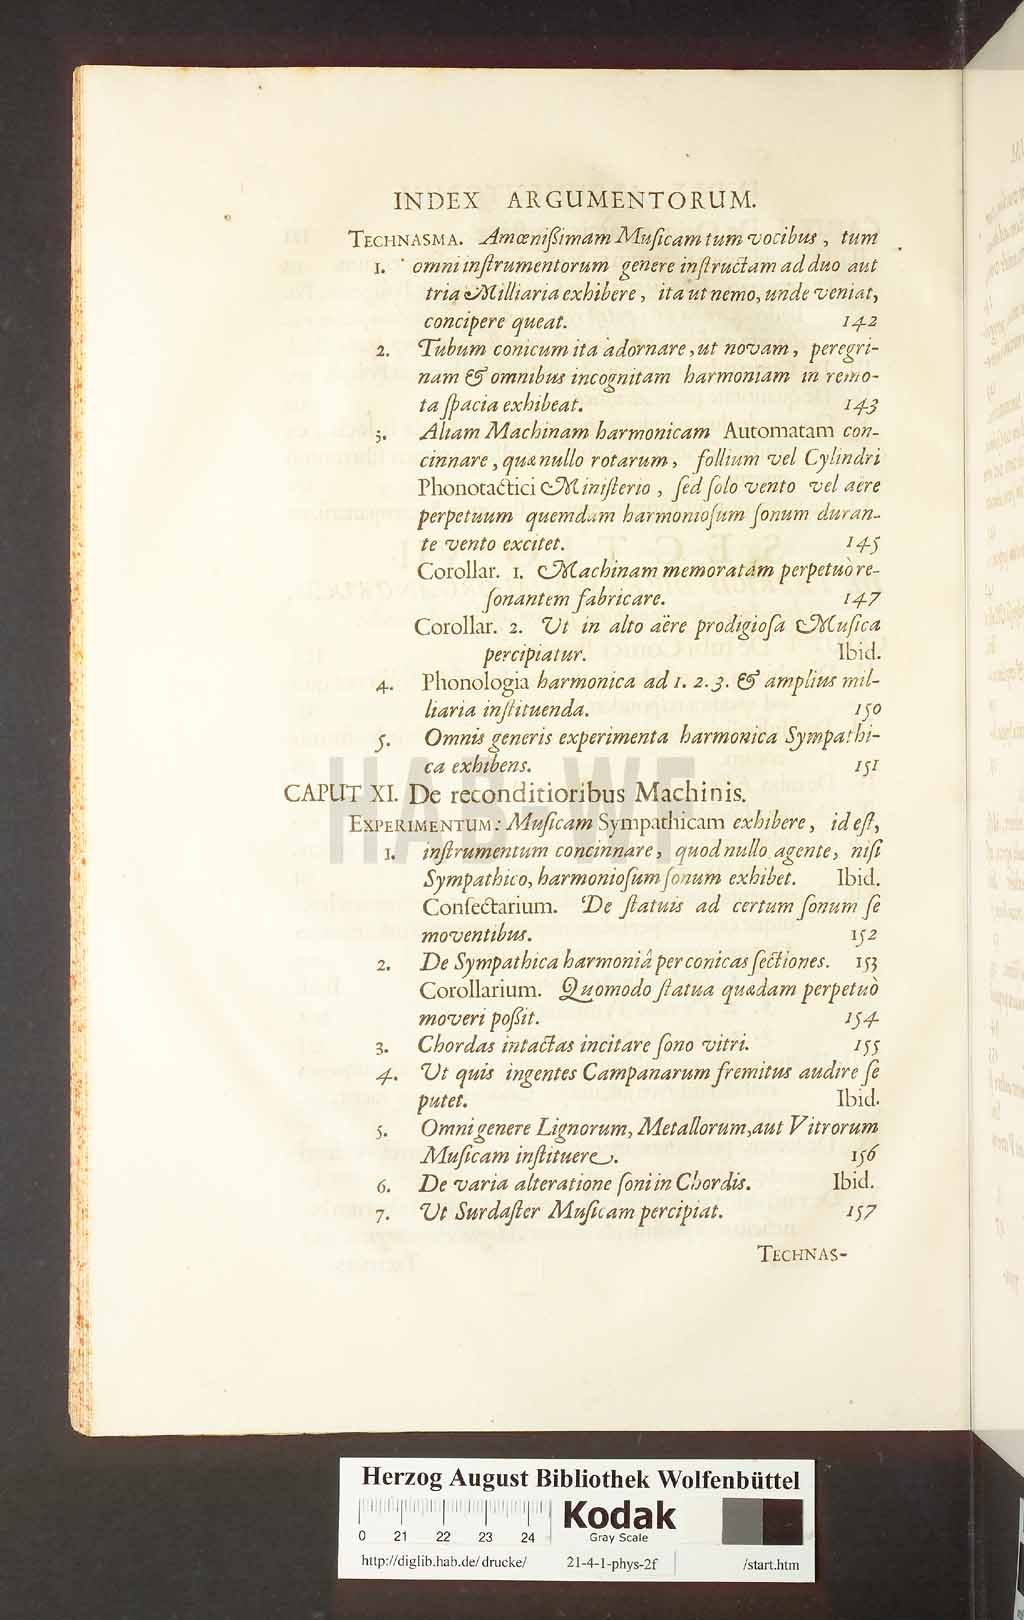 INDEX ARGUMENTORUM.
TECHNASMA. Amœnißimam Muſicam tum vocibus, tum
1. omni inſtrumentorum genere inſtructam ad duo aut
tria Milliaria exhibere, ita ut nemo, unde veniat,
concipere queat. 142
2. Tubum conicum ita adornare, ut novam, peregri-
nam & omnibus incognitam harmoniam in remo-
ta ſpacia exhibeat. 143
3. Aliam Machinam harmonicam Automatam con-
cinnare, quæ nullo rotarum, follium vel Cylindri
Phonotactici Miniſterio, ſed ſolo vento vel aëre
perpetuum quemdam harmonioſum ſonum duran-
te vento excitet. 145
Corollar. 1. Machinam memoratam perpetuò re-
ſonantem fabricare. 147
Corollar. 2. Ut in alto aëre prodigioſa Muſica
percipiatur. Ibid.
4. Phonologia harmonica ad 1. 2. 3. & amplius mil-
liaria inſtituenda. 150
5. Omnis generis experimenta harmonica Sympathi-
ca exhibens. 151
CAPUT XI. De reconditioribus Machinis.
EXPERIMENTUM: Muſicam Sympathicam exhibere, id eſt,
1. inſtrumentum concinnare, quod nullo agente, niſi
Sympathico, harmonioſum ſonum exhibet. Ibid.
Conſectarium. De ſtatuis ad certum ſonum ſe
moventibus. 152
2. De Sympathica harmoniâ per conicas ſectiones. 153
Corollarium. Quomodo ſtatua quædam perpetuò
moveri poßit. 154
3. Chordas intactas incitare ſono vitri. 155
4. Ut quis ingentes Campanarum fremitus audire ſe
putet. Ibid.
5. Omni genere Lignorum, Metallorum, aut Vitrorum
Muſicam inſtituere. 156
6. De varia alteratione ſoni in Chordis. Ibid.
7. Ut Surdaſter Muſicam percipiat. 157
TECHNAS-
HAB-WF
Herzog August Bibliothek Wolfenbüttel
0 21 22 23 24
Kodak
Gray Scale
http://diglib.hab.de/drucke/ 21-4-1-phys-2f /start.htm